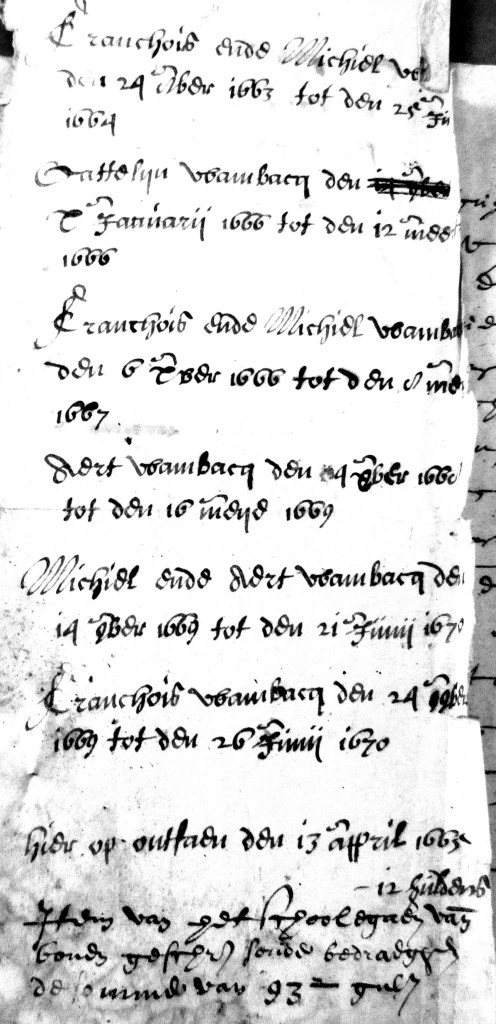 Franchois ende Michiel
den 24 9ber 1663 tot den 25 Ju
1664
Cattelijn vbambacq den
X Januarii 1666 tot den 12 mee
1666
Franchois ende Michiel vbamba
den 6 Xber 1666 tot den 8 me
1667
Aert vbambacq den 4 ber 166
tot den 16 meije 1669
Michiel ende Aert vbambacq den
14 9ber 1669 tot den 21 Junij 1670
Franchois vbambacq den 24 9ber
1669 tot den 26 Junii 1670
hier op ontfaen den 13 Appril 1665
12 guldens
Item van het schoolegaen van
boven geschr sonde bedraeghen
de somme van 93 - gul